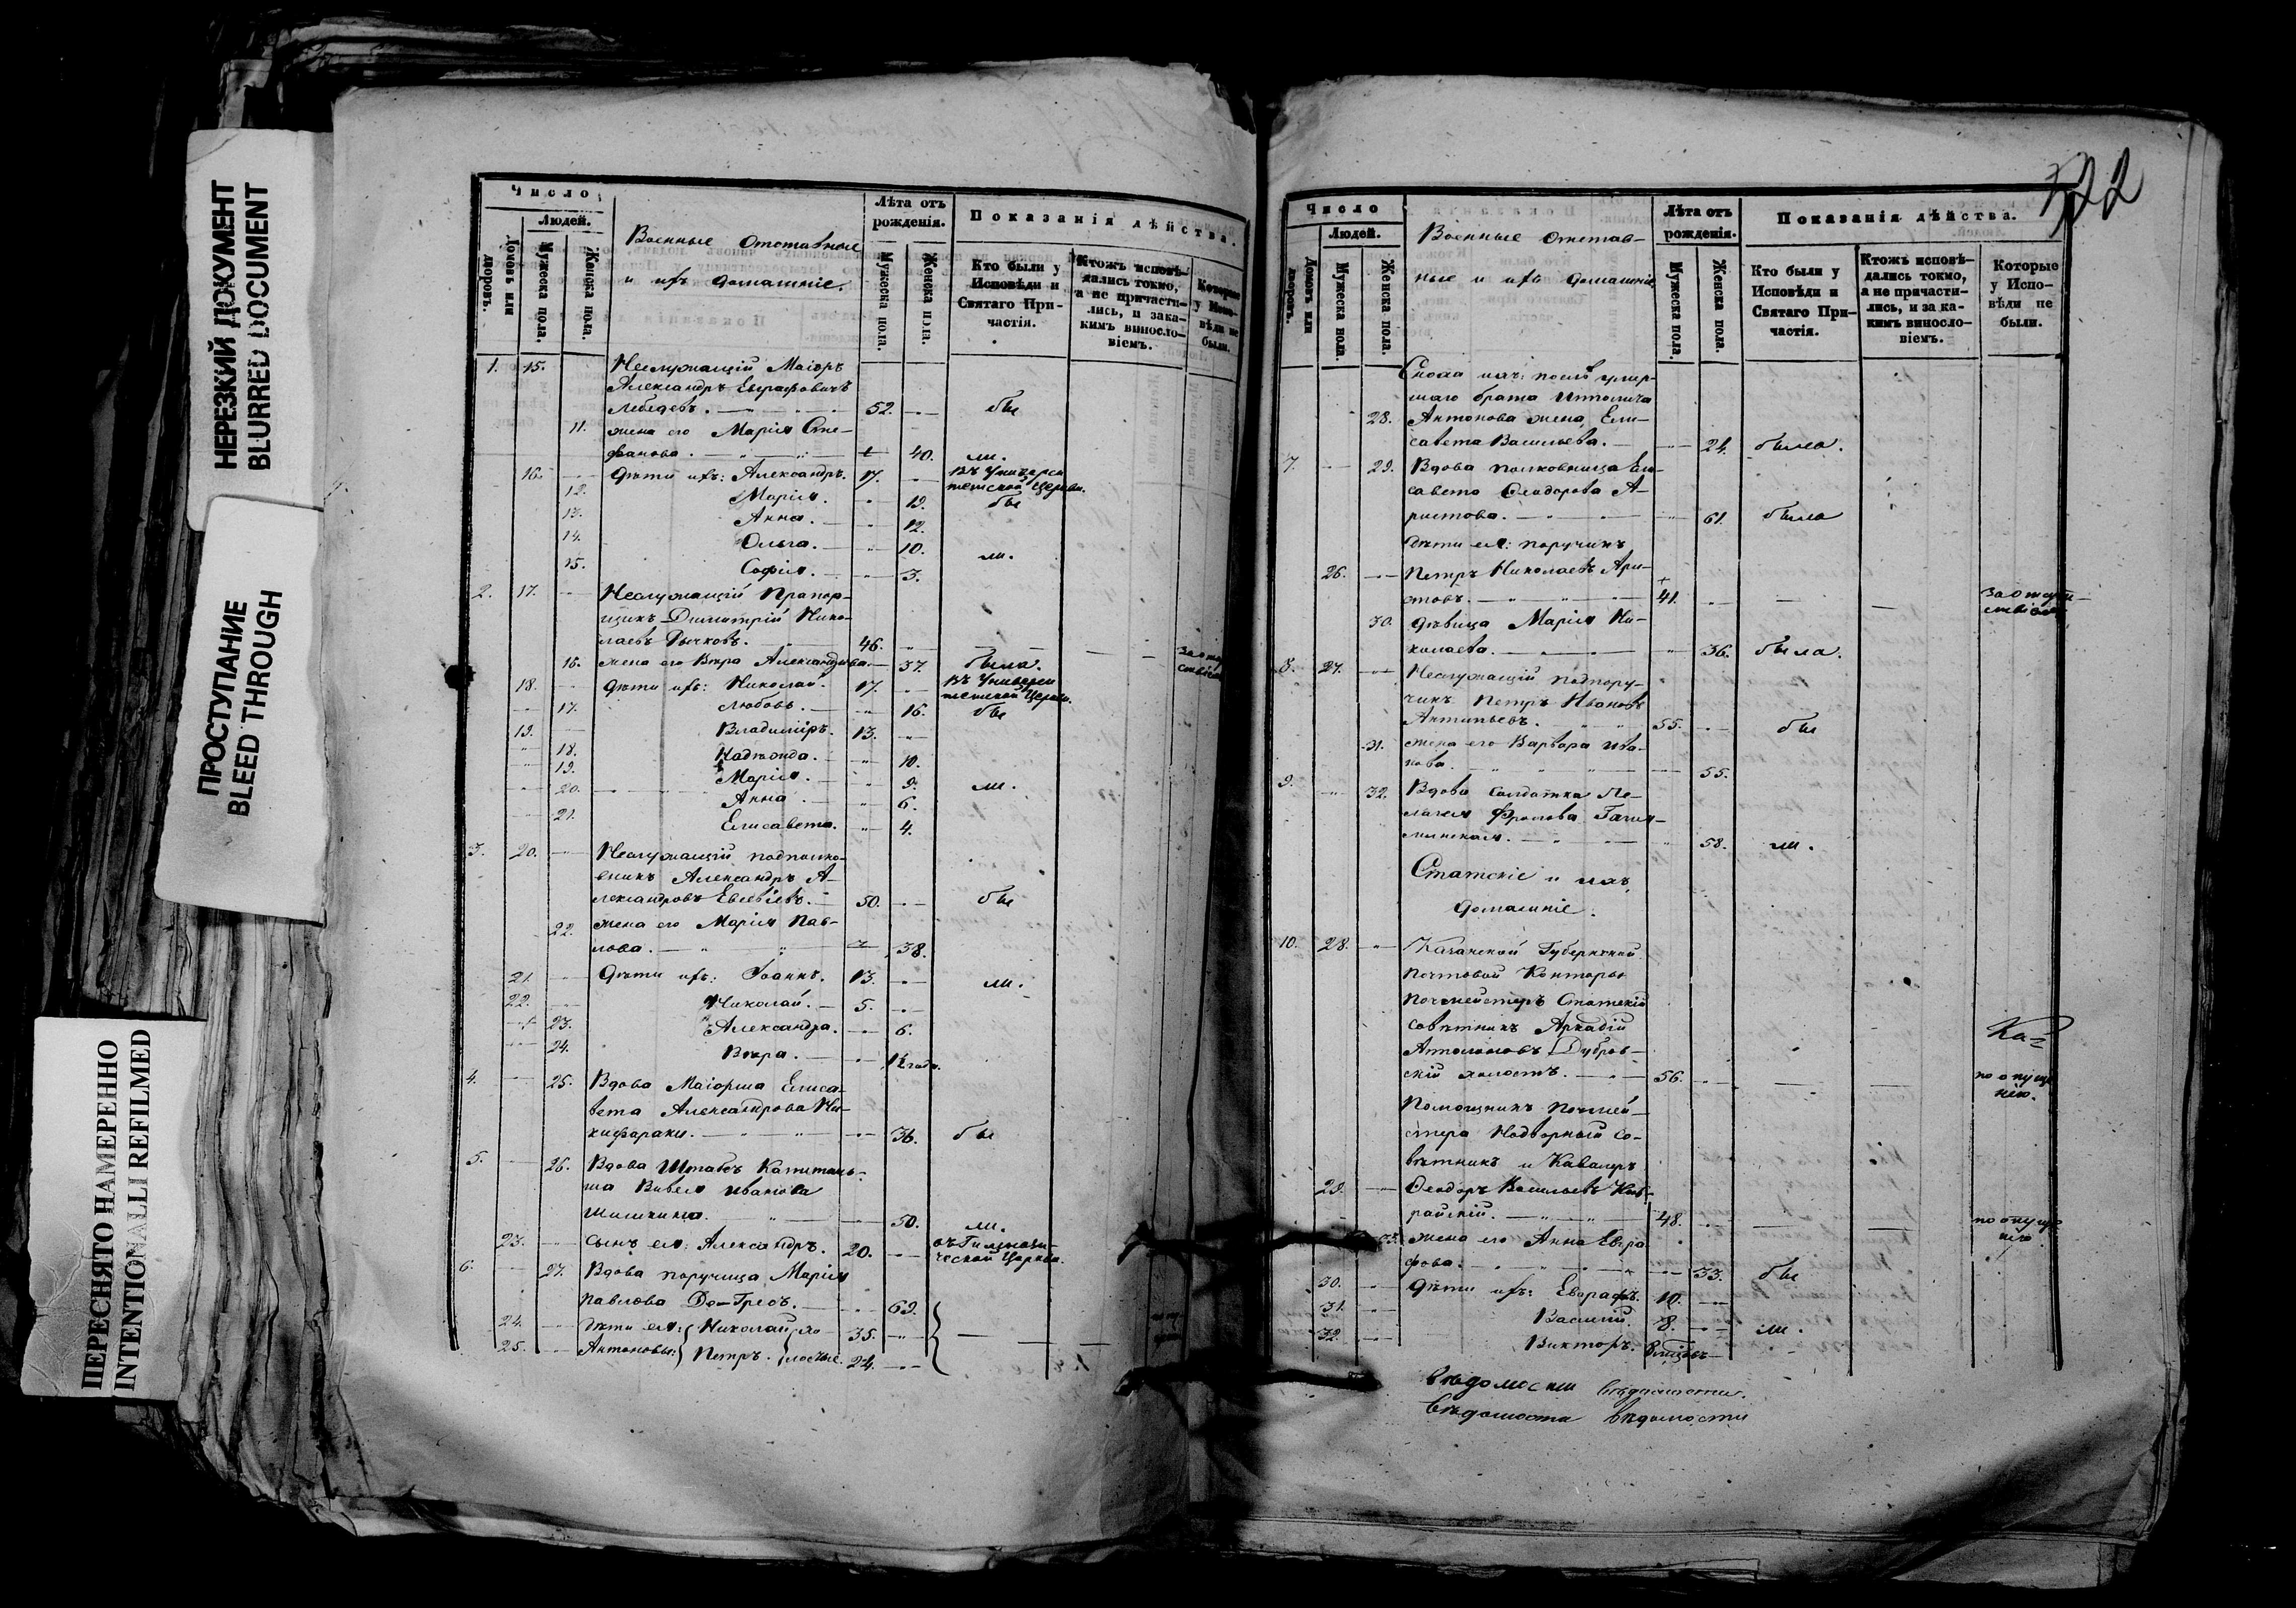 НЕРЕЗКИЙ ДОКУМЕНТ
BLURRED DOCUMENT
ПРОСТУПАНИЕ
BLEED THROUGH
ПЕРЕСНЯТО НАМЕРЕННО
INTENTIONALLI REFILMED
Число
Людей.
Домовъ или дворовъ.
Мужеска пола.
Женска пола.
Военные Отставные
и ихъ домашніе.
Лѣта отъ рожденія.
Мужеска пола.
Женска пола.
Показанія дѣйства.
Кто были у Исповѣди и Святаго Причастія.
Ктожъ исповѣдались токмо, а не причастились, и за какимъ винословіемъ.
Которые у Исповѣди не были.
1. 15. Неслужащій Маіоръ
Александръ Евграфовичъ
Лебедевъ. 52. бы
11. жена его Марія Сте-
фанова. 40. ли.
16. дѣти ихъ: Александръ. 17. въ Универси
тетской Церкви.
12. Марія. 19. бы
13. Анна. 12.
14. Ольга. 10. ли.
15. Софія. 3.
2. 17. Неслужащій Прапор-
щикъ Димитрій Нико-
лаевъ Рычковъ. 46.
16. жена его Вѣра Александрова. 37. была.
18. дѣти ихъ: Николай. 17. въ Универси
тетской Церкви.
17. Любовь. 16. бы
19. Владиміръ. 13.
18. Надежда. 10.
19. Марія. 9. ли.
20. Анна. 6.
21. Елисавета. 4.
3. 20. Неслужащій подполко-
вникъ Александръ А-
лександровъ Евсевіевъ. 50. бы
22. жена его Марія Пав-
лова. 38.
21. дѣти ихъ: Іоаннъ. 13. ли.
22. Николай. 5.
23. Александра. 6.
24. Вѣра. 1½ года.
4. 25. Вдова Маіорша Елиса-
вета Александрова Ни-
кифораки. 36. бы
5. 26. Вдова Штабсъ Капитан-
ша Вивея Иванова
Шишкина. 50. ли.
23. сынъ ея: Александръ. 20. въ Гимнази-
ческой Церкви.
6. 27. Вдова поручица Марія
Павлова Де-Гресъ. 69.
24. дѣти ея: Николай хо 35.
25. Антоновы: Петръ. лостые. 24.
522
Число
Людей.
Домовъ или дворовъ.
Мужеска пола.
Женска пола.
Военные Отстав-
ные и ихъ домашніе
Лѣта отъ рожденія.
Мужеска пола.
Женска пола.
Показанія дѣйства.
Кто были у Исповѣди и Святаго Причастія.
Ктожъ исповѣдались токмо, а не причастились, и за какимъ винословіемъ.
Которые у Исповѣди не были.
Сноха ихъ: послѣ умер-
шаго брата Ипполита
28. Антонова жена Ели-
савета Васильева. 24. была.
7. 29. Вдова полковница Ели-
савета Ѳеодорова А-
ристова. 61. была
дѣти ея: поручикъ
26. Петръ Николаевъ Ари-
стовъ. 41. за отсут-
ствіемъ
30. дѣвица Марія Ни-
колаева. 36. была.
8. 27. Неслужащій подпору-
чикъ Петръ Ивановъ
Антипьевъ. 55. бы
31. жена его Варвара Ива-
нова. 55.
9. 32. Вдова Солдатка Пе-
лагея Фролова
58. ли.
Статскіе и ихъ
домашніе.
10. 28. Казанской Губернской
Почтовой Конторы
почмейстеръ Статскій
совѣтникъ Аркадій
Антоновъ Дубров-
скій холостъ. 56. по опуще
нію.
Помощникъ Почмей-
стера Надворный Со-
вѣтникъ и Кавалеръ
29. Ѳеодоръ Васильевъ
райскій. 48. по опуще
нію
33. жена его Анна Евгра
фова. 33. бы
30. дѣти ихъ: Евграфъ. 10.
31. Василій. 8. ли.
32. Викторъ.
вѣдомости вѣдомости.
вѣдомости вѣдомости